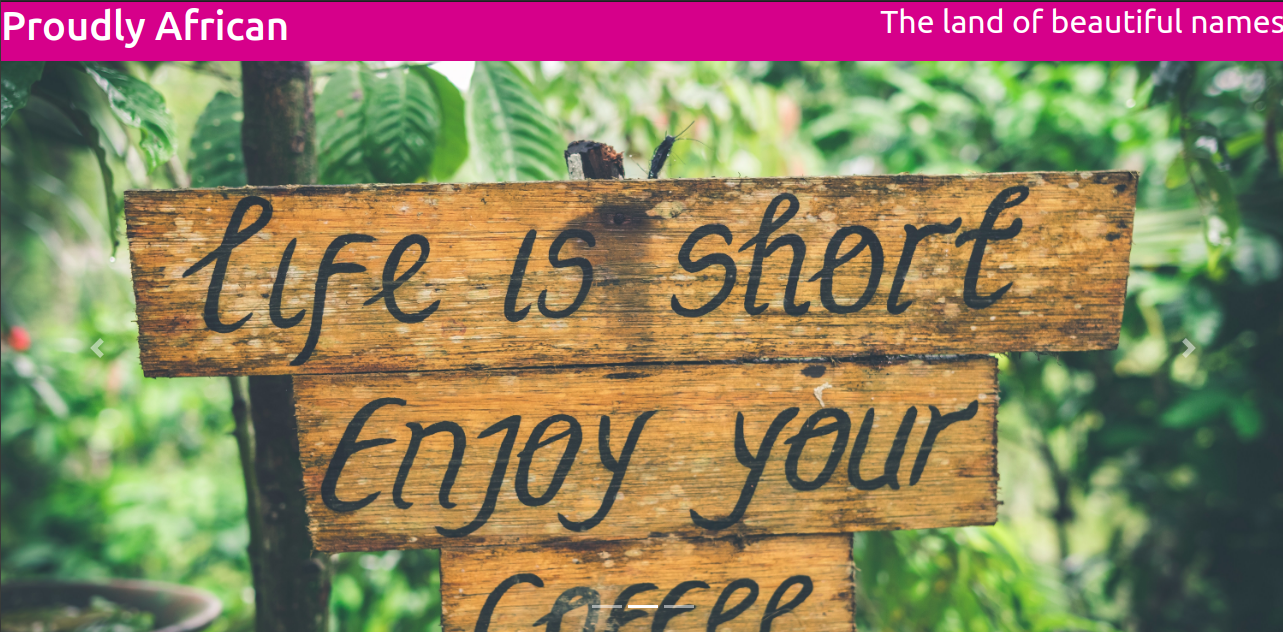 Proudly African
The land of beautiful names
life is short
Enjoy your
Coffee